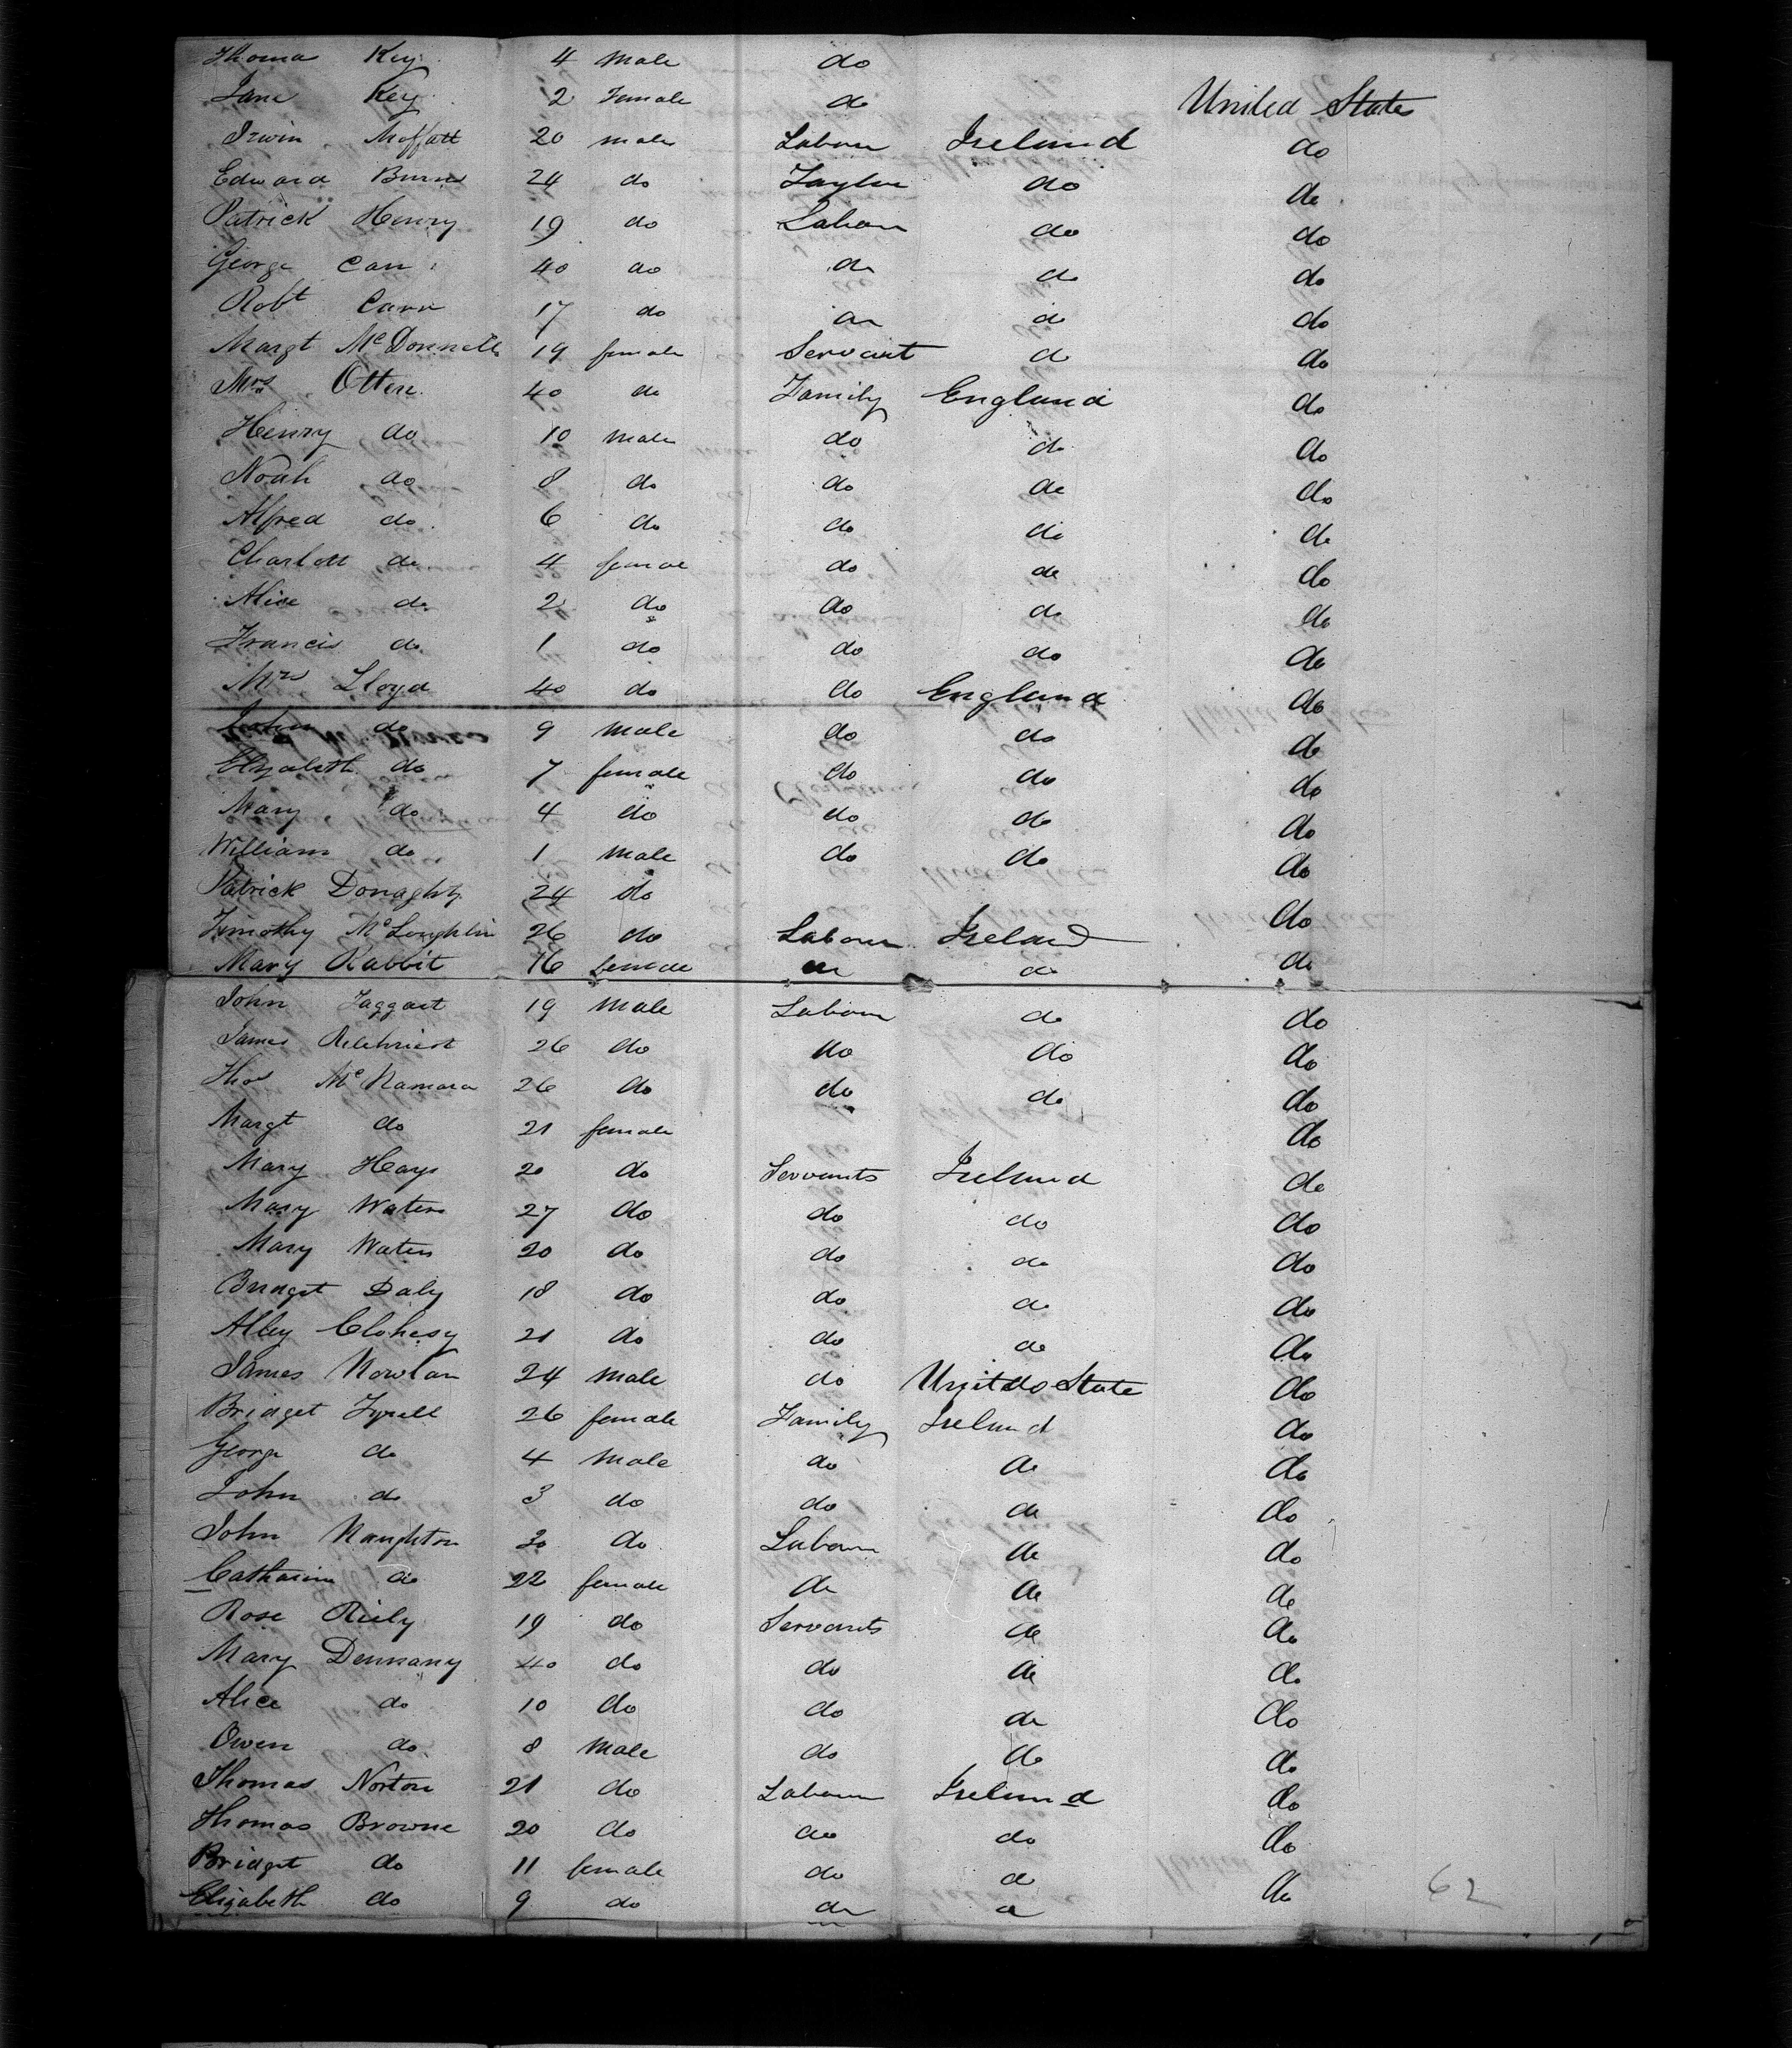 Thomas Key 4 Male do
Jane Key 2 Female do United States
Irwin Moffatt 20 male Labour Ireland do
Edward Burns 24 do Taylor do do
Patrick Henry 19 do Labour do do
George Carr 40 do do do do
Robt Carr 17 do do do do
Margt McDonnell 19 female Servant do do
Mrs Otten 40 do Family England do
Henry do 10 male do do do
Noah do 8 do do do do
Alfred do 6 do do do do
Charlott do 4 female do do do
Alice do 2 do do do do
Francis do 1 do do do do
Mrs Lloyd 40 do do England do
John do 9 male do do do
Elizabeth do 7 female do do do
Mary do 4 do do do do
William do 1 male do do do
Patrick Donaghty 24 do do
Timothy McLoughlin 26 do Labour Ireland do
Mary Rabbit 16 female do do
John Taggart 19 Male Labour do do
James 26 do do do do
Thos McNamara 26 do do do do
Margt do 21 female do
Mary Hays 20 do Servants Ireland do
Mary Waters 27 do do do do
Mary Waters 20 do do do do
Bridget Daly 18 do do do do
Alley Clohesy 21 do do do do
James Nowlan 24 male do United State do
Bridget Tyrell 26 female Family Ireland do
George do 4 Male do do do
John do 3 do do do do
John Naughton 30 do Labour do do
Catharine do 22 female do do do
Rose Riely 19 do Servants do do
Mary Dennany 40 do do do do
Alice do 10 do do do do
Owen do 8 Male do do do
Thomas Norton 21 do Labour Ireland do
Thomas Browne 20 do do do do
Bridget do 11 female do do do
Elizabeth do 9 do do do 62